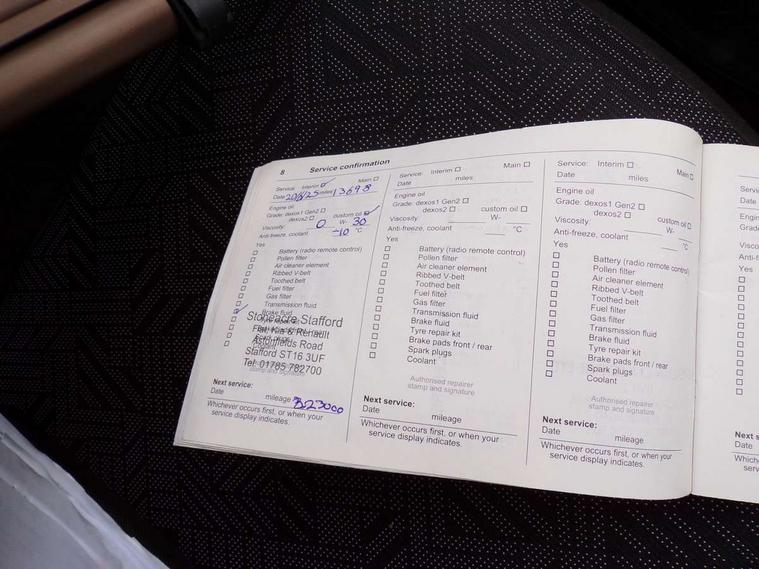 8 Service confirmation
Service: Interim ☑ Main ☐
Date 20/8/25 miles 13698
Engine oil
Grade: dexos1 Gen2 ☐
dexos2 ☐ custom oil ☑
Viscosity: 0 W- 30
Anti-freeze, coolant -10 °C
Yes
☐ Battery (radio remote control)
☐ Pollen filter
☐ Air cleaner element
☐ Ribbed V-belt
☐ Toothed belt
☐ Fuel filter
☐ Gas filter
☐ Transmission fluid
☑ Brake fluid
Stoneacre Stafford
Fiat, Kia & Renault
Astonfields Road
Stafford ST16 3UF
Tel: 01785 782700
stamp and signature
Next service:
Date mileage 23000
Whichever occurs first, or when your
service display indicates.
Service: Interim ☐ Main ☐
Date miles
Engine oil
Grade: dexos1 Gen2 ☐
dexos2 ☐ custom oil ☐
Viscosity: W-
Anti-freeze, coolant °C
Yes
☐ Battery (radio remote control)
☐ Pollen filter
☐ Air cleaner element
☐ Ribbed V-belt
☐ Toothed belt
☐ Fuel filter
☐ Gas filter
☐ Transmission fluid
☐ Brake fluid
☐ Tyre repair kit
☐ Brake pads front / rear
☐ Spark plugs
☐ Coolant
Authorised repairer
stamp and signature
Next service:
Date mileage
Whichever occurs first, or when your
service display indicates.
Service: Interim ☐ Main ☐
Date miles
Engine oil
Grade: dexos1 Gen2 ☐
dexos2 ☐ custom oil ☐
Viscosity: W-
Anti-freeze, coolant °C
Yes
☐ Battery (radio remote control)
☐ Pollen filter
☐ Air cleaner element
☐ Ribbed V-belt
☐ Toothed belt
☐ Fuel filter
☐ Gas filter
☐ Transmission fluid
☐ Brake fluid
☐ Tyre repair kit
☐ Brake pads front / rear
☐ Spark plugs
☐ Coolant
Authorised repairer
stamp and signature
Next service:
Date mileage
Whichever occurs first, or when your
service display indicates.
Date
Yes
Next s
Date